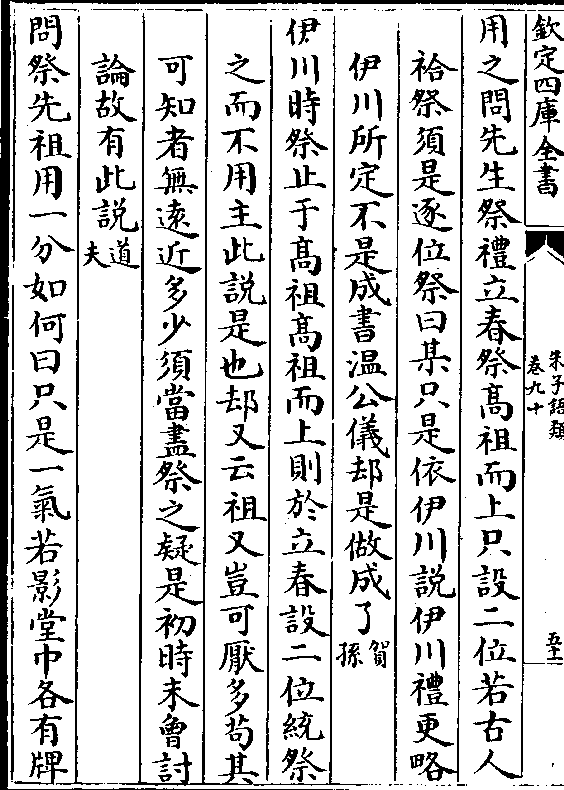 欽定四庫全書
朱子語類
卷九十
五十一
用之問先生祭禮立春祭髙祖而上只設二位若古人
祫祭須是逐位祭曰某只是依伊川說伊川禮更略
伊川所定不是成書温公儀却是做成了賀孫
伊川時祭止于髙祖髙祖而上則於立春設二位統祭
之而不用主此說是也却又云祖又豈可厭多苟其
可知者無逺近多少須當盡祭之疑是初時未曾討
論故有此說道夫
問祭先祖用一分如何曰只是一氣若影堂中各有牌